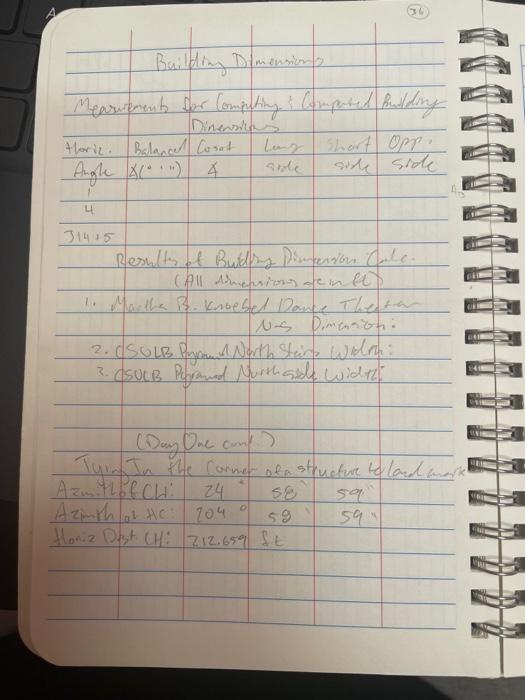 36
Building Dimensions
Measurements for Computing & Computed Building
Dimensions
Horiz. Balanced Cosof Long Short Opp.
Angle ∡(° ' ") ∡ side side side
1
4
314+5
Results of Building Dimension Calc.
(All dimensions are in ft)
1. Martha B. Knoebel Dance Theater
N-S Dimension:
2. CSULB Pyramid North Stairs Width:
3. CSULB Pyramid North side Width:
(Day One cont.)
Tying In the Corner of a structure to land mark
Azimith of CH: 24° 58' 59"
Azimth of HC: 204° 58' 59"
Horiz Dist CH: 212.659 ft